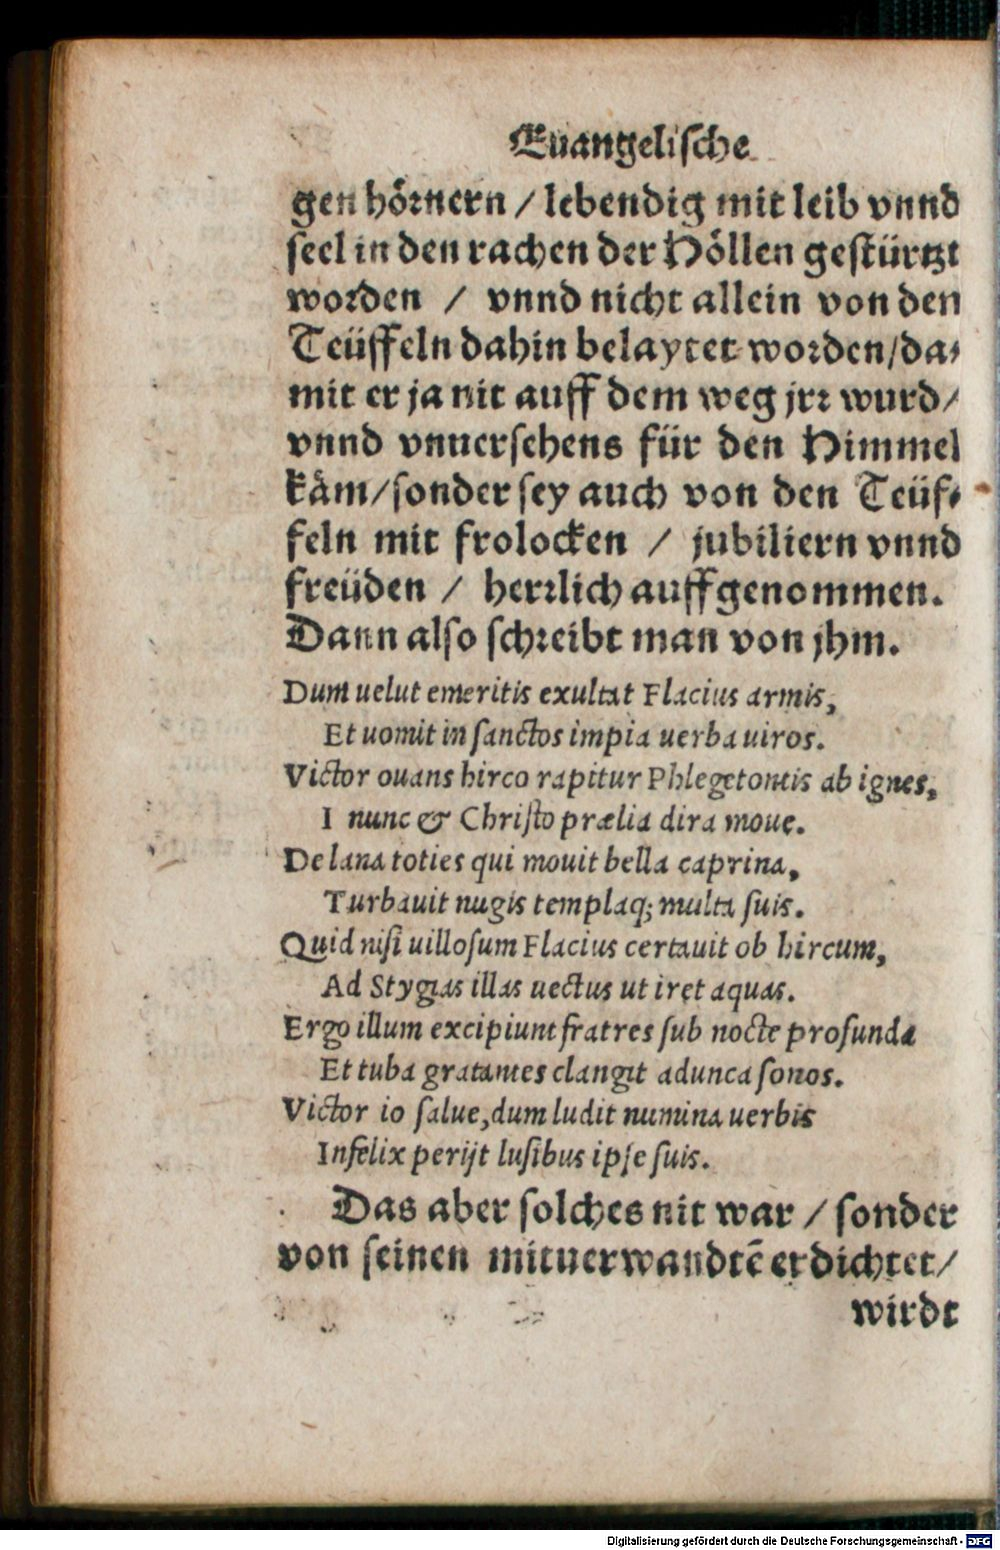 Euangelische
gen hoͤrnern / lebendig mit leib vnnd
seel in den rachen der Hoͤllen gestürtzt
worden / vnnd nicht allein von den
Teüffeln dahin belaytet worden/da⸗
mit er ja nit auff dem weg jrr wurd/
vnnd vnuersehens für den Himmel
kaͤm/sonder sey auch von den Teüf⸗
feln mit frolocken / jubiliern vnnd
freüden / herrlich auffgenommen.
Dann also schreibt man von jhm.
Dum uelut emeritis exultat Flacius armis,
Et uomit in sanctos impia uerba uiros.
Victor ouans hirco rapitur Phlegetontis ab ignes,
I nunc & Christo prælia dira moue.
De lana toties qui mouit bella caprina,
Turbauit nugis templaq; multa suis.
Quid nisi uillosum Flacius certauit ob hircum,
Ad Stygias illas uectus ut iret aquas.
Ergo illum excipiunt fratres sub nocte profunda
Et tuba gratantes clangit adunca sonos.
Victor io salue,dum ludit numina uerbis
Infelix perijt lusibus ipse suis.
Das aber solches nit war / sonder
von seinen mituerwandtē erdichtet/
wirdt
Digitalisierung gefördert durch die Deutsche Forschungsgemeinschaft - DFG